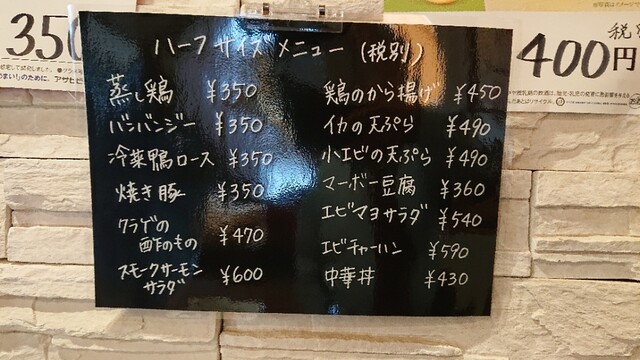 350
ハーフサイズメニュー(税別)
400円
蒸し鶏 ¥350
バンバンジー ¥350
冷菜鴨ロース ¥350
焼き豚 ¥350
クラゲの
酢のもの ¥470
スモークサーモン
サラダ ¥600
鶏のから揚げ ¥450
イカの天ぷら ¥490
小エビの天ぷら ¥490
マーボー豆腐 ¥360
エビマヨサラダ ¥540
エビチャーハン ¥590
中華丼 ¥430